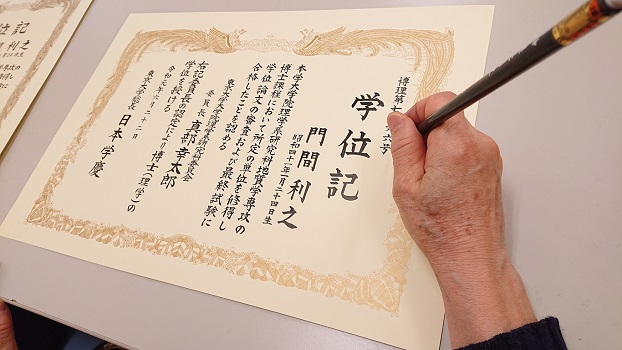 博理第七 六号
学位記
門間利之
昭和四十一年一月二十四日生
本学大学院理学系研究科地質学専攻の
博士課程において所定の単位を修得し
学位論文の審査および最終試験に
合格したことを認める
東京大学大学院理学系研究科委員会
委員長 真部幸太郎
右記委員長の認定により博士(理学)の
学位を授ける
令和元年六月二十二日
東京大学 長 日本学慶
位記
利之